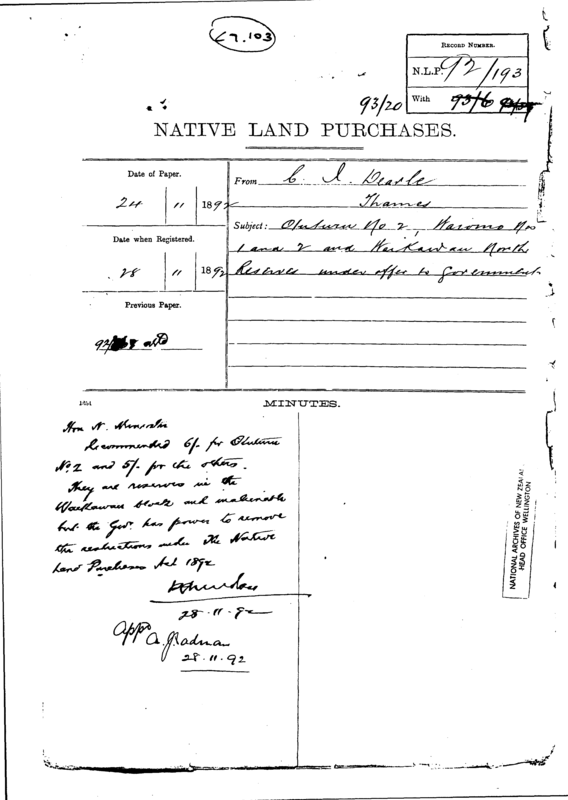 L7.103
RECORD NUMBER.
N.L.P. 92/193
With 93/6
93/20
NATIVE LAND PURCHASES.
Date of Paper.
24 11 1892
Date when Registered.
28 11 1892
Previous Paper.
92/
From C. I. Dearle
Thames
Subject: Otuturu No 2, Waromo Nos
1 and 2 and Waikawau North
Reserves under offer to Government
MINUTES.
Hon N. Minister
Recommended 6/- for Otuturu
No 2 and 5/- for the others.
They are reserves in the
Waikawau block and inalienable
but the Govt. has power to remove
the restrictions under The Native
Land Purchases Act 1892
28.11.92
Appd
A. J. Cadman
28.11.92
NATIONAL ARCHIVES OF NEW ZEALAND
HEAD OFFICE WELLINGTON